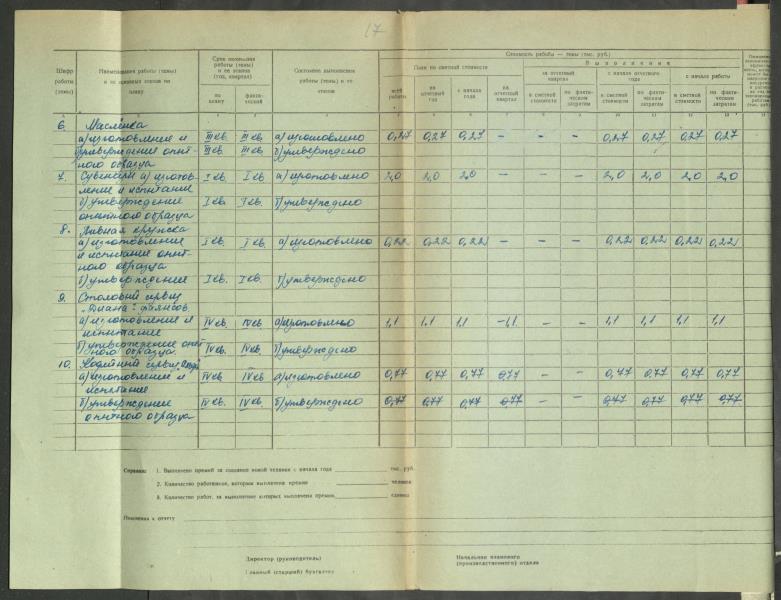 17
Шифр работы (темы)
Наименование работы (темы) и ее основных этапов по плану
Срок окончания работы (темы) и ее этапа (год, квартал)
по плану
факти- ческий
Состояние выполнения работы (темы) и ее этапов
Стоимость работы — темы (тыс. руб.)
План по сметной стоимости
Выполнение
всей работы
на отчетный год
с начала года
на отчетный квартал
за отчетный квартал
с начала отчетного года
с начала работы
в сметной стоимости
по факти- ческим затратам
в сметной стоимости
по факти- ческим затратам
в сметной стоимости
по факти- ческим затратам
6. Масленка
а) изготовление и III кв. III кв. а) изготовлено 0,27 0,27 0,27 – – – 0,27 0,27 0,27 0,27
б) утверждение опыт- III кв. III кв. б) утверждено
ного образца
7. Сувениры а) изготов- I кв. I кв. а) изготовлено 2,0 2,0 2,0 – – – 2,0 2,0 2,0 2,0
ление и испытание
б) утверждение I кв. I кв. б) утверждено
опытного образца
8. Пивная кружка
а) изготовление I кв. I кв. а) изготовлено 0,22 0,22 0,22 – – – 0,22 0,22 0,22 0,22
и испытание опыт-
ного образца
б) утверждение I кв. I кв. б) утверждено
9. Столовый сервиз
„Диана" фаянсов.
а) изготовление и IV кв. IV кв. а) изготовлено 1,1 1,1 1,1 –1,1 – – 1,1 1,1 1,1 1,1
испытание
б) утверждение опыт- IV кв. IV кв. б) утверждено
ного образца.
10. Кофейный сервиз
а) изготовление и IV кв. IV кв. а) изготовлено 0,77 0,77 0,77 0,77 – – 0,77 0,77 0,77 0,77
испытание
б) утверждение IV кв. IV кв. б) утверждено 0,77 0,77 0,77 0,77 – – 0,77 0,77 0,77 0,77
опытного образца
Справки: 1. Выплачено премий за создание новой техники с начала года тыс. руб.
2. Количество работников, которым выплачена премия человек
3. Количество работ, за выполнение которых выплачена премия единиц
Пояснения к отчету
Директор (руководитель)
Главный (старший) бухгалтер
Начальник планового
(производственного) отдела